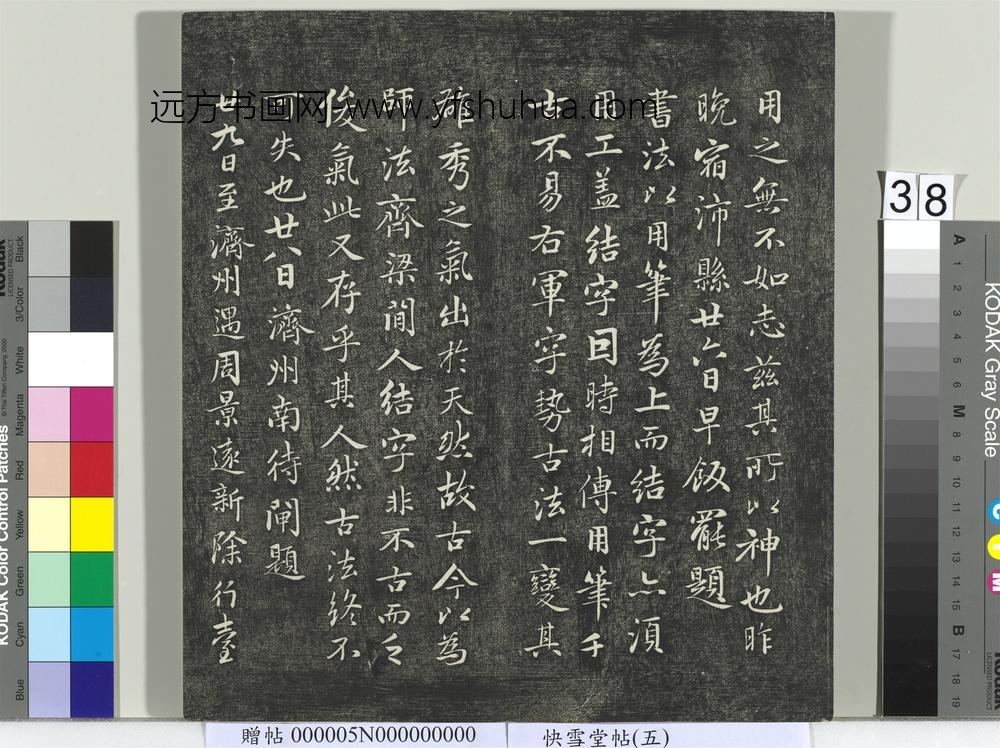 用之無不如志茲其所以神也昨
晚宿沛縣廿六日早飯罷題
書法以用筆為上而結字亦須
用工盖結字因時相傳用筆千
古不易右軍字勢古法一變其
雄秀之氣出於天然故古今以為
師法齊梁間人結字非不古而乏
俊氣此又存乎其人然古法終不
可失也廿八日濟州南待閘題
廿九日至濟州遇周景遠新除行臺
远方书画网-www.yfshuhua.com
38
KODAK Color Control Patches
Kodak
LICENSED PRODUCT
© The Tiffen Company, 2000
Blue
Cyan
Green
Yellow
Red
Magenta
White
3/Color
Black
KODAK Gray Scale
C
Y
M
Kodak
LICENSED PRODUCT
A 1 2 3 4 5 6 M 8 9 10 11 12 13 14 15 B 17 18 19
贈帖 000005N000000000
快雪堂帖(五)